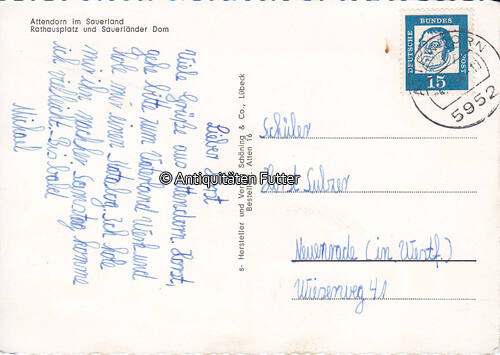 Attendorn im Sauerland
Rathausplatz und Sauerländer Dom
Lieber Horst
Viele Grüße aus Attendorn. Horst,
gehe bitte zum Fahrrad und
hole mir einen ich hole
mir ihn nächsten Samstag komme
ich vielleicht. Bis bald
Michael
s- Hersteller und Verlag Schöning & Co., Lübeck
Bestell Atten 16
DEUTSCHE BUNDES POST
15
5952
Schüler
Horst Sulzer
Neuenrade (in Westf.)
Wiesenweg 41
© Antiquitäten Futter